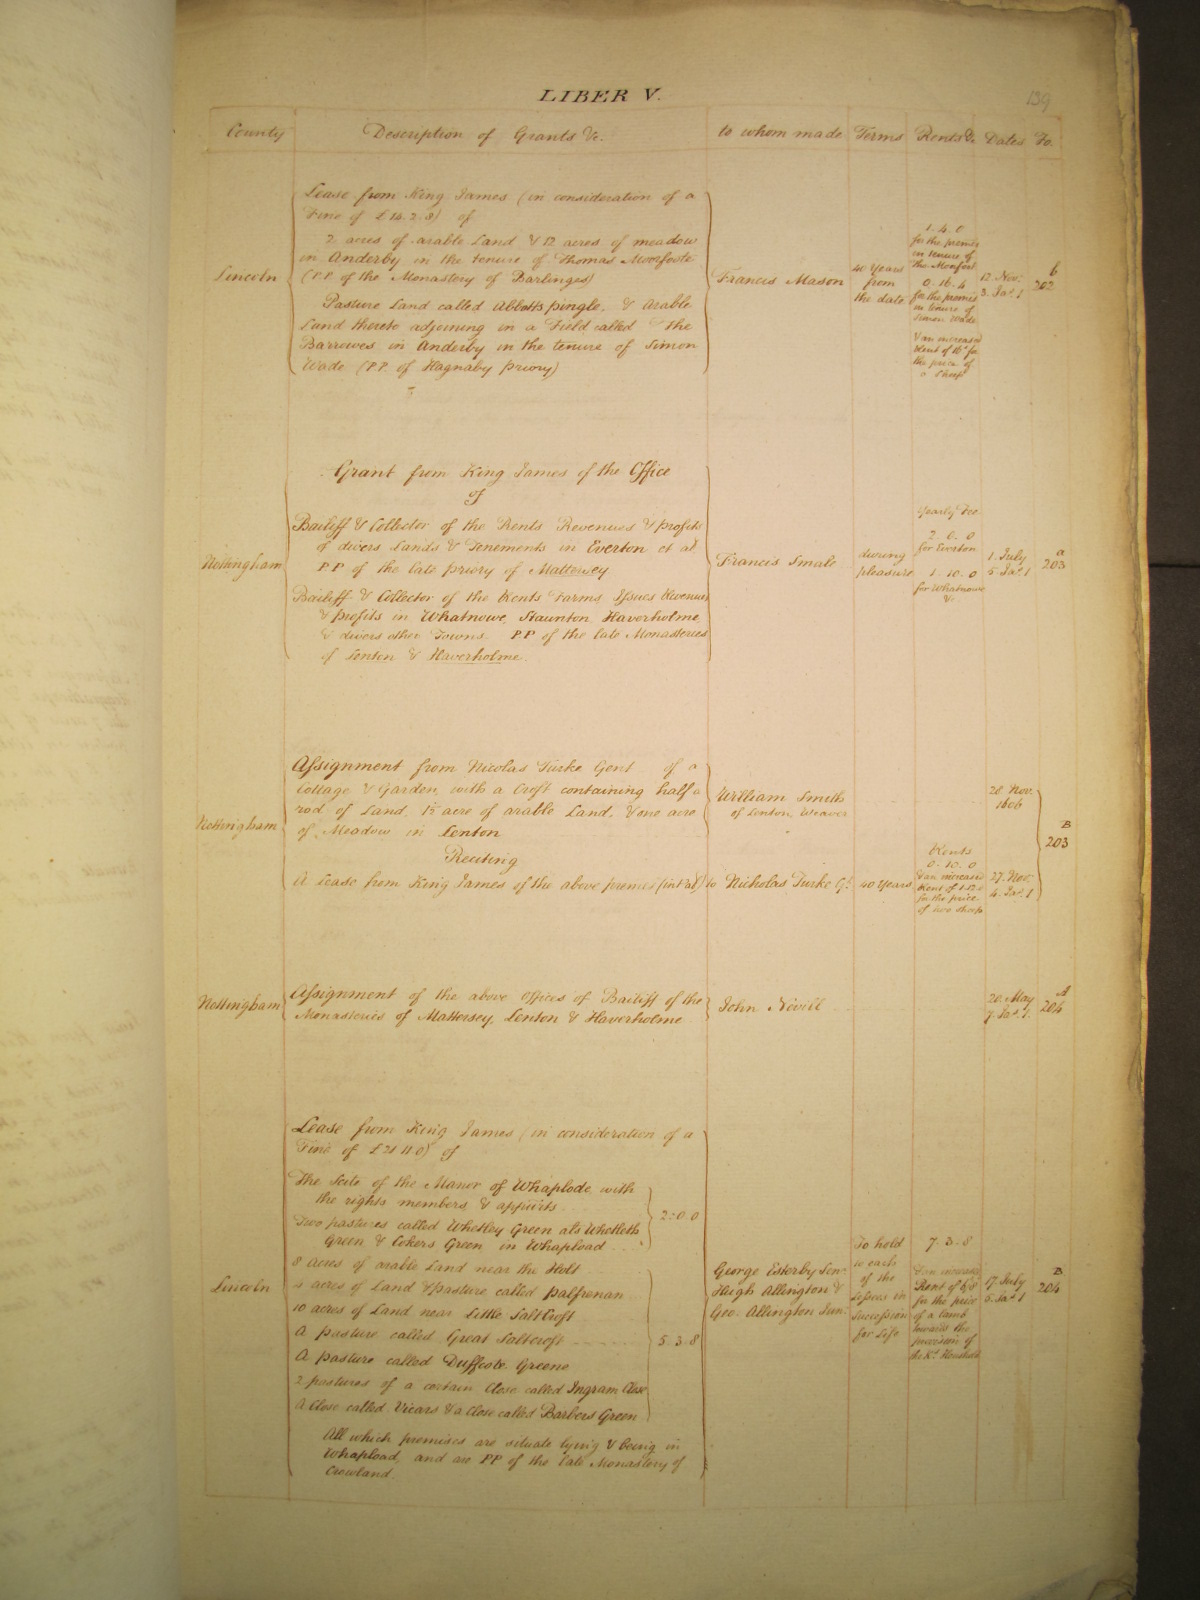 LIBER V.
139
County
Description of Grants &c.
to whom made
Terms
Rents &c.
Dates
Fo.
Lincoln
Lease from King James (in consideration of a
Fine of £14.2.8) of
2 acres of arable Land & 12 acres of meadow
in Anderby in the tenure of Thomas Moorfoote
(P.P. of the Monastery of Barlings)
Pasture Land called Abbotts pingle, & Arable
Land thereto adjoining in a Field called The
Barrowes in Anderby in the tenure of Simon
Wade (P.P. of Hagnaby priory)
Francis Mason
40 Years
from
the date
1.4.0
for the premes
in tenure of
the Moorfoot
0.16.4
for the premes
in tenure of
Simon Wade
& an increased
Rent of
for
the price of
a Sheep
12 Nov.
3. Jas. 1
b
202
Nottingham
Grant from King James of the Office
of
Bailiff & Collector of the Rents Revenues & profits
of divers Lands & Tenements in Everton et al
P.P of the late priory of Mattersey
Bailiff & Collector of the Rents Farms Issues Revenues
& profits in Whatnowe, Staunton Haverholme
& divers other Towns. P.P of the late Monasteries
of Lenton & Haverholme
Francis Smale
during
pleasure
Yearly Fee
2.0.0
for Everton
1.10.0
for Whatnowe
&c
1 July
5 Jas. 1
a
203
Nottingham
Assignment from Nicolas Turke Gent of a
Cottage & Garden, with a Croft containing half a
rod of Land, 1½ acre of arable Land, & one acre
of Meadow in Lenton
William Smith
of Lenton, Weaver
28 Nov.
1606
B
203
Reciting
A Lease from King James of the above premes (int al) to
Nicholas Turke Gt.
40 Years
Rents
0.10.0
& an increased
Rent of
for the price
of two sheep
27. Nov.
4. Jas. 1
Nottingham
Assignment of the above Offices of Bailiff of the
Monasteries of Mattersey, Lenton & Haverholme
John Nevill
20. May
7. Jas. 1.
A
204
Lincoln
Lease from King James (in consideration of a
Fine of £21 11.0) of
The Scite of the Manor of Whaplode with
the rights members & appurts
Two pastures called Whetley Green als Whetleth
Green & Cokers Green in Whapload
2.0.0
8 Acres of arable Land near the Holt
4 acres of Land & pasture called palfrenan
10 acres of Land near Little Saltcroft
A pasture called Great Saltcroft
A pasture called Duffcote Greene
2 pastures of a certain Close called Ingram Close
A Close called Vicars & a Close called Barbers Green
5.3.8
All which premises are situate lying & being in
Whapload, and are P.P of the late Monastery of
Crowland.
George Esterby Senr.
Hugh Allington &
Geo. Allington Jun.
To hold
to each
of the
Lessees in
Succession
for Life
7.3.8
& an increase
Rent of
for the price
of a lamb
towards the
provision of
the Ks. Houshold
17. July
5. Jas. 1
B
204